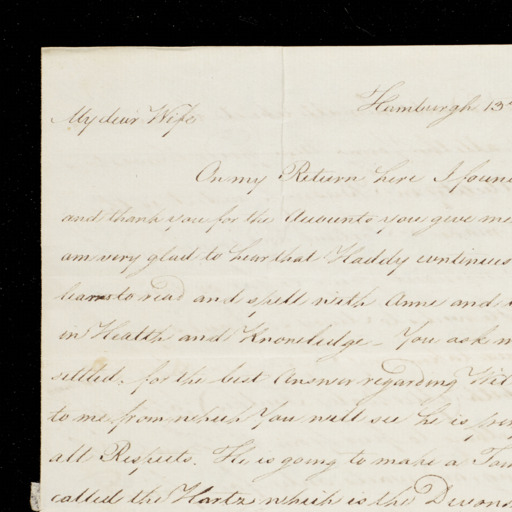 Hamburgh 13
My dear Wife
On my Return here I found
and thank you for the Accounts you give me
am very glad to hear that Haddy continues
learns to read and spell with Anne and
in Health and Knowledge - You ask
settled. for the best Answer regarding
to me from which You will see he is
all Respects. He is going to make a Tour
called the Hartz which is the Devons